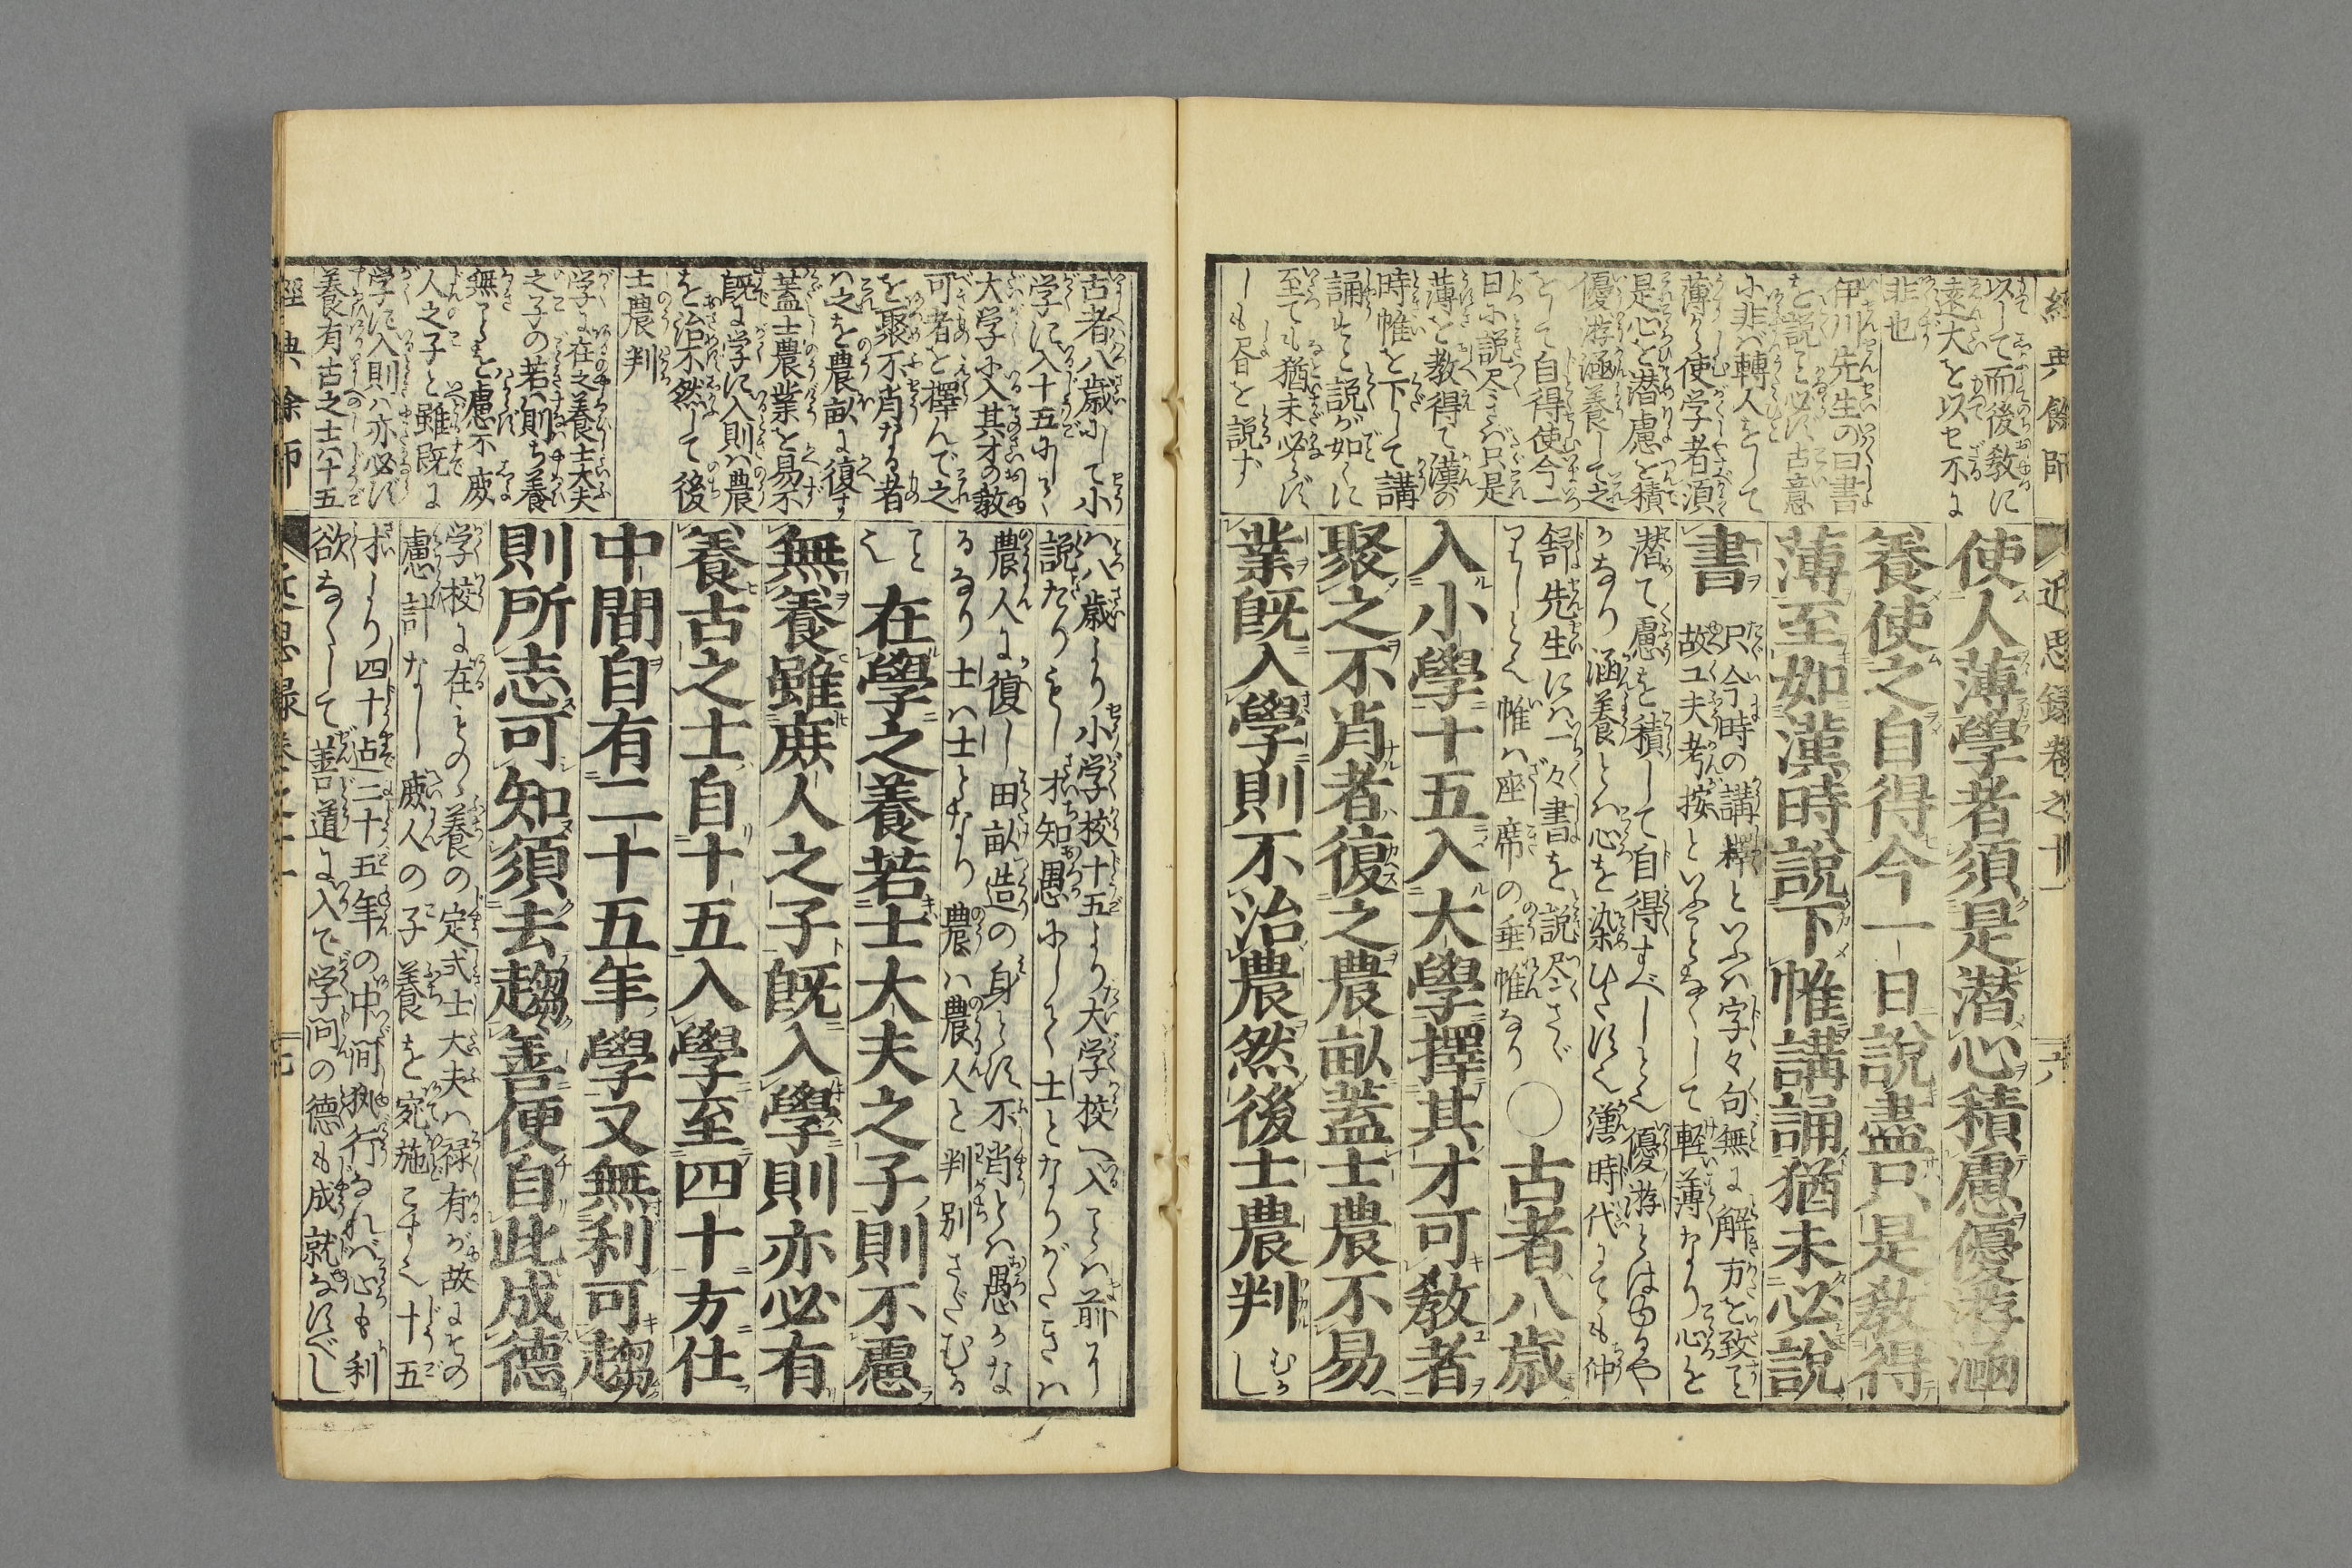 経典餘師
近思録巻之十一
以して而後教に
遠大を以セ不に
非也
伊川先生の曰書
を説こと必ず古意
に非ば轉人をして
薄から使学者須
是心を潜慮を積
優游涵養して之
をして自得使今一
日に説尽さば只是
薄を教得て漢の
時帷を下して講
誦すと説が如くに
至ても猶未必らず
しも書を説ず
使人薄學者須是潛心積慮優游涵
養使之自得今一日說盡只是教得
薄至如漢時說下帷講誦猶未必說
書
只今時の講釋といふハ字々句無に解方を致てと
故ユ夫考按といふことなくして軽薄なり心を
潜て慮を積して自得すべしと也優游とはゆるや
かなり涵養とハ心を染ひたす也漢時代にても仲
舒先生にハ一々書を説尽さず
つりしとぞ帷ハ座席の垂帷なり
○古者八歳
入小學十五入大學擇其才可教者
聚之不肖者復之農畝蓋士農不易
業既入學則不治農然後士農判
古者八歳にして小
学に入十五にして
大学に入其才の教
可者を擇んで之
を聚不肖なる者
ハ之を農畝に復す
蓋士農業を易不
既に学に入則ハ農
を治不然して後
士農判
学に在之養士大夫
之子の若ハ則ち養
無ことを慮不庶
人之子と雖既に
学に入則ハ亦必ず
養有古之士ハ十五
ハ八歳より小学校十五より大学校へ入ことハ前に
説たりもし才知愚にしてハ士となりがたきハ
農人に復し田畝造の身とす不肖とハ愚かな
るなり士ハ士となり農ハ農人と判別さだむる
こと也
在學之養若士大夫之子則不慮
無養雖庶人之子既入學則亦必有
養古之士自十五入學至四十方仕
中間自有二十五年學又無利可趨
則所志可知須去趨善便自此成德
学校に在との養の定式士大夫ハ禄有が故にその
慮計なし庶人の子養を宛施こす也十五
才より四十迠二十五年の中間執行なれバ心も利
欲なくして善道に入て学問の徳も成就なすべし
経典餘師